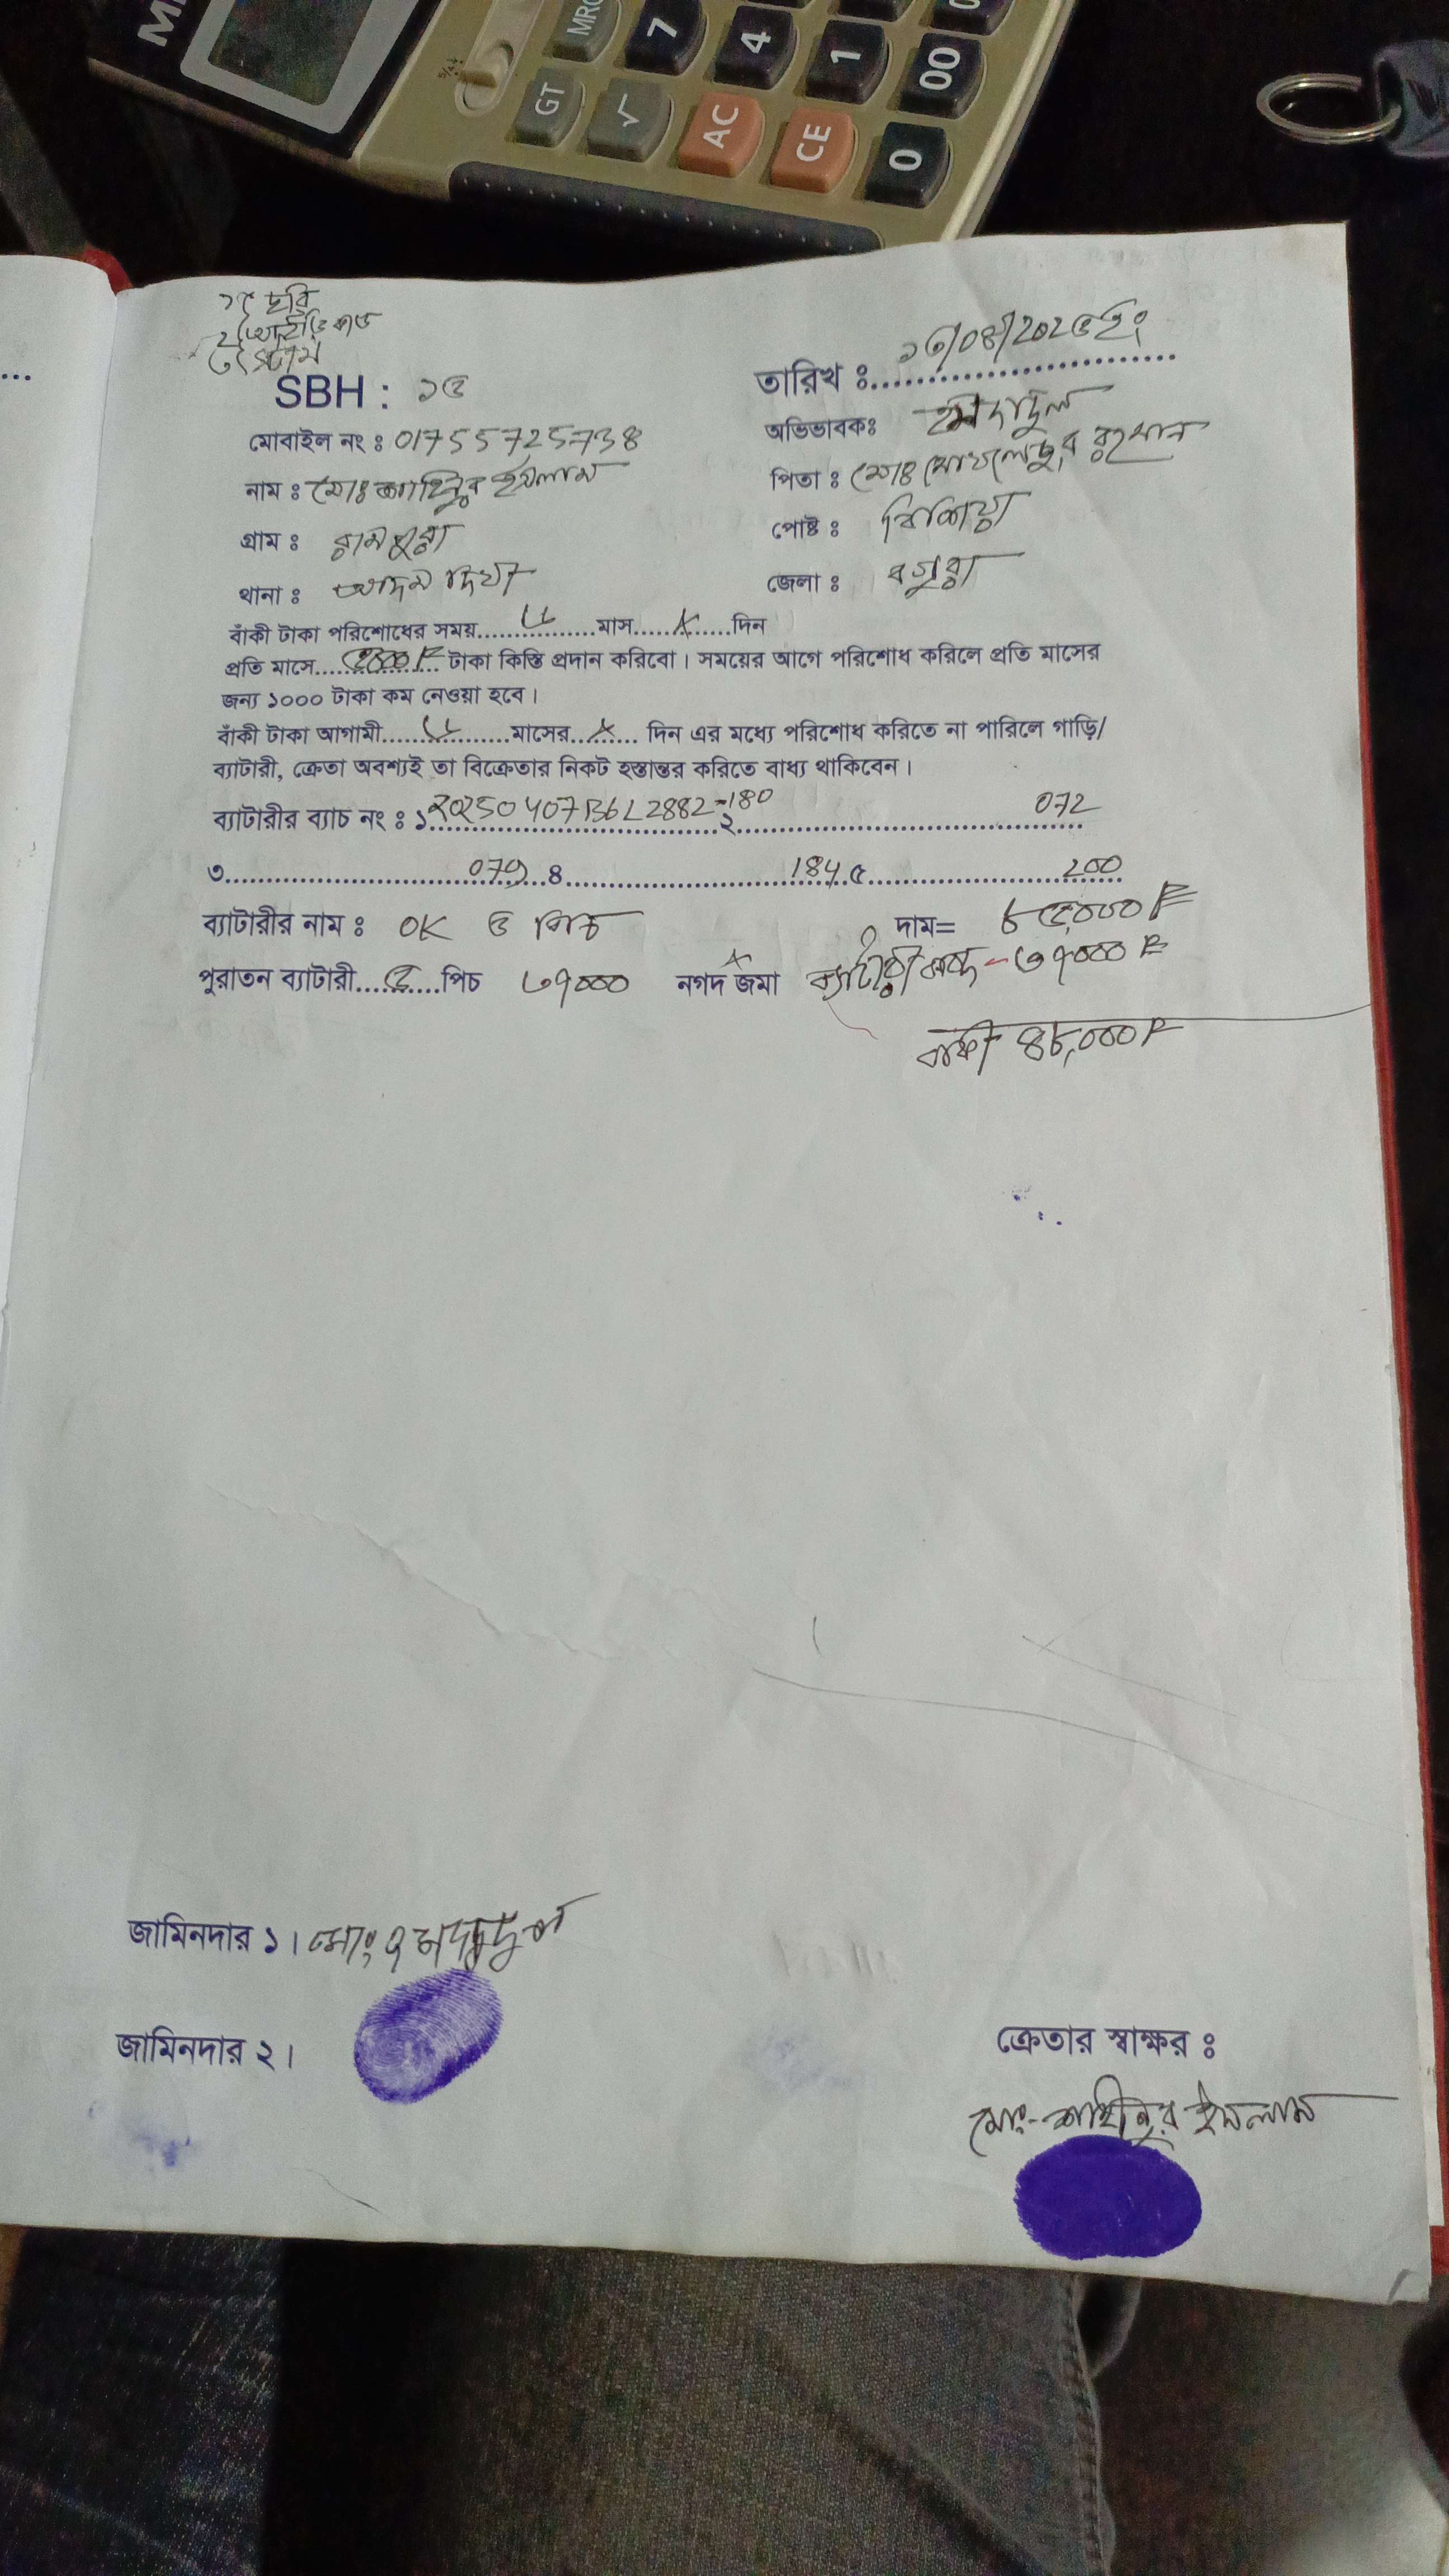 MRC 7 4 1 00
GT √ AC CE 0
5/4
১৫ ছবি
SBH : ১৫
তারিখ ঃ
অভিভাবকঃ
মোবাইল নং ঃ 01755725738
নাম ঃ মোঃ শাহিনুর ইসলাম
পিতা ঃ মোঃ মোখলেছুর রহমান
গ্রাম ঃ রামপুরা
পোষ্ট ঃ
থানা ঃ আদমদিঘী
জেলা ঃ বগুরা
বাঁকী টাকা পরিশোধের সময়..................মাস..............দিন
প্রতি মাসে.................. টাকা কিস্তি প্রদান করিবো। সময়ের আগে পরিশোধ করিলে প্রতি মাসের
জন্য ১০০০ টাকা কম নেওয়া হবে।
বাঁকী টাকা আগামী..................মাসের.......... দিন এর মধ্যে পরিশোধ করিতে না পারিলে গাড়ি/
ব্যাটারী, ক্রেতা অবশ্যই তা বিক্রেতার নিকট হস্তান্তর করিতে বাধ্য থাকিবেন।
ব্যাটারীর ব্যাচ নং ঃ ১ 20250407B6L2882-180 ২ 072
৩ 079 ৪ 184 ৫ 200
ব্যাটারীর নাম ঃ OK ৫ পিচ দাম= ৮৫,০০০
পুরাতন ব্যাটারী....৫....পিচ ৩৭০০০ নগদ জমা x ব্যাটারী বাবদ - ৩৭০০০
বাকী ৪৮,০০০
জামিনদার ১। মোঃ
জামিনদার ২।
ক্রেতার স্বাক্ষর ঃ
মোঃ-শাহীনুর ইসলাম